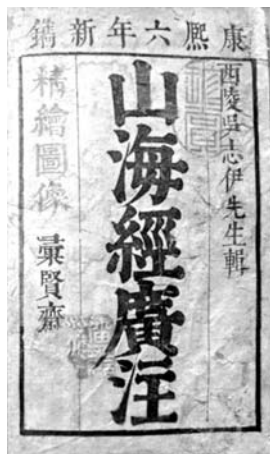 康熙六年新鐫
西陵吳志伊先生輯
山海經廣注
精繪圖像
彙賢齋